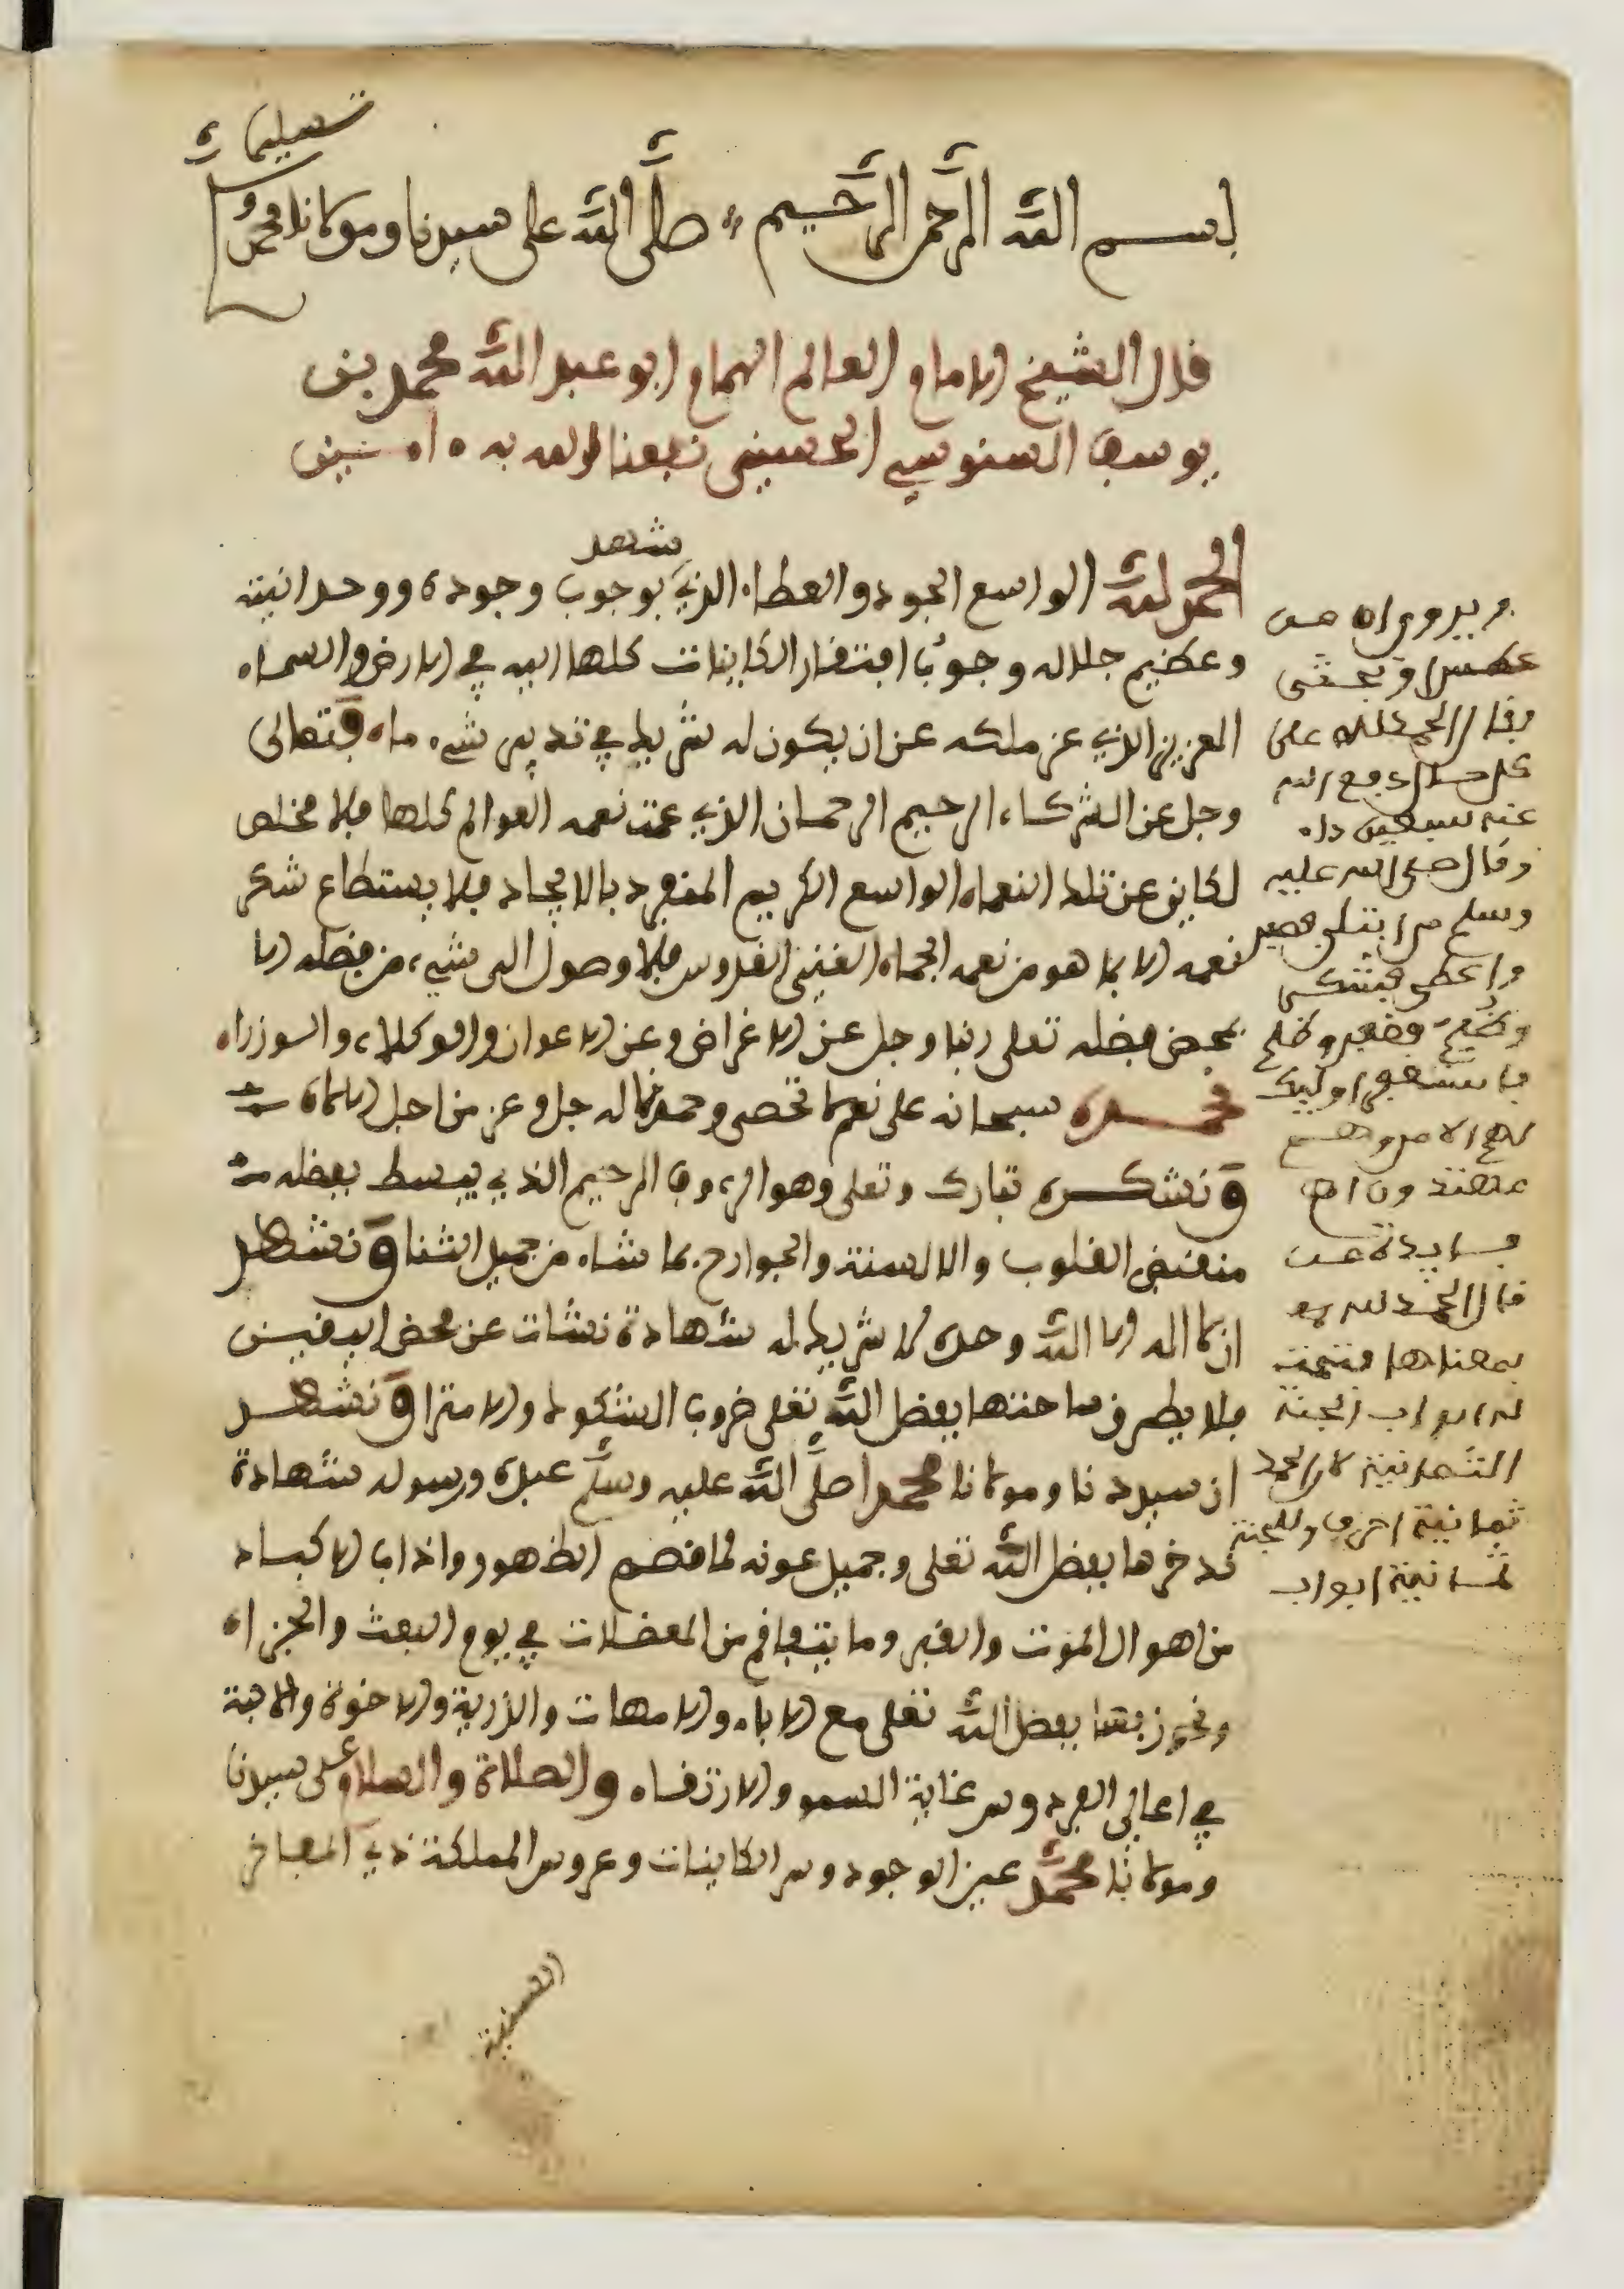 بسم الله الرحمن الرحيم صلى الله على سيدنا ومولانا محمد و
تسليما
قال الشيخ الامام العالم الهمام ابو عبد الله محمد بن
يوسف السنوسي الحسيني نفعنا الله به امين
الحمد لله الواسع الجود والعطاء الذي شهد بوجوب وجوده ووحدانيته
وعظيم جلاله وجوب افتقار الكاينات كلها اليه في الارض والسماء
العزيز الذي عز ملكه عن ان يكون له شريك في تدبير شيء ما وتعالى
وجل عن الشركاء الرحيم الرحمان الذي عمت نعمه العوالم كلها فلا مخلص
لكاين عن تلك النعماء الواسع الكريم المنفرد بالايجاد فلا يستطاع شكر
نعمه الا بما هو من نعمه الجماء الغني القدوس فلا وصول الى شيء من فضله الا
بمحض فضله تعلى ربنا وجل عن الاغراض وعن الاعوان والوكلاء والوزراء
نحمده سبحانه على نعم لا تحصى وحمدنا له جل وعز من اجل الالاء
ونشكره تبارك وتعلى وهو الرءوف الرحيم الذي يبسط بفضله
منقبض القلوب والالسنة والجوارح بما شاء من جميل الثنا ونشهد
ان لا اله الا الله وحده لا شريك له شهادة نشات عن محض اليقين
فلا يطرق ساحتها بفضل الله تعلى ضروب الشكوك والامترا ونشهد
ان سيدنا ومولانا محمدا صلى الله عليه وسلم عبده ورسوله شهادة
ندخرها بفضل الله تعلى وجميل عونه لما قصم الظهور واذاب الاكباد
من اهوال الموت والقبر وما يتفاقم من المعضلات في يوم البعث والجزاء
ونحوز بها بفضل الله تعلى مع الاباء والامهات والذرية والاخوة والاحبة
في اعالي الفردوس غاية السمو والارتقاء والصلاة والسلام على سيدنا
ومولانا محمد عين الوجود وسر الكاينات وعروس المملكة ذي المفاخر
السنية
ويروى ان من
عطس او تجشى
وقال الحمد لله على
كل حال دفع الله
عنه سبعين داء
وقال صلى الله عليه
وسلم من ابتلي فصبر
واعطي فشكر
وظلم فغفر وظلم
فاستغفر اوليك
لهم الامن وهم
مهتدون اه
فايدة عن
قال الحمد لله
بمعناها فتحت
له ابواب الجنة
الثمانية لان الحمد
ثمانية احرف وللجنة
ثمانية ابواب